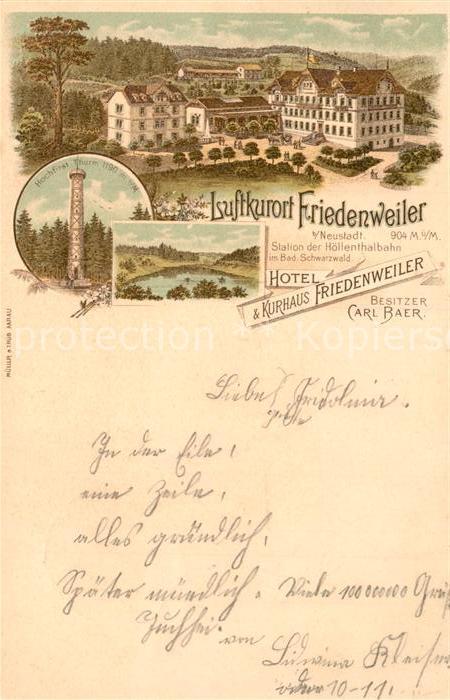 Hochfirst Thurm 1190 M.ü/M.
Luftkurort Friedenweiler
b/Neustadt. 904 M.ü/M.
Station der Höllenthalbahn
im Bad. Schwarzwald.
HOTEL
& KURHAUS FRIEDENWEILER
BESITZER
CARL BAER.
MÜLLER & TRÜB AARAU
Liebe Fridolina.
In der Eile,
eine Zeile,
alles gründlich,
Später mündlich. Viele 100000000 Grüß
Juchhei. von
Ludwina Kleiser
10-11.